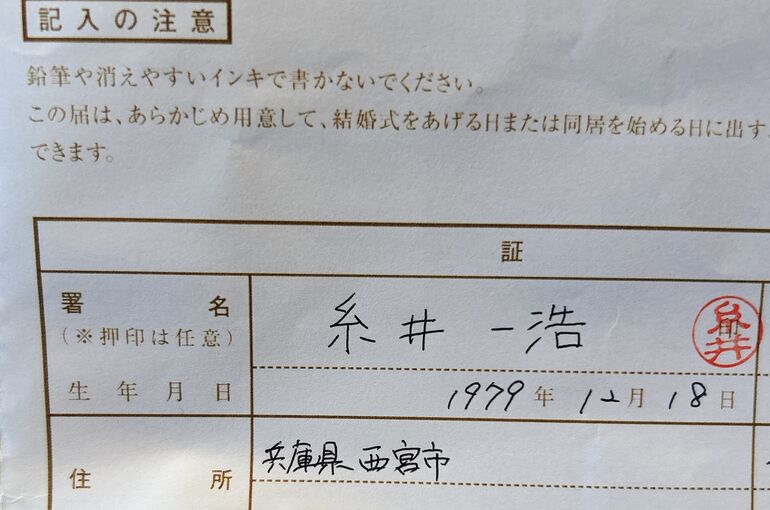 記入の注意
鉛筆や消えやすいインキで書かないでください。
この届は、あらかじめ用意して、結婚式をあげる日または同居を始める日に出す
できます。
証
署名 糸井 一浩 印 糸井
(※押印は任意)
生年月日 1979年 12月 18日
住所 兵庫県西宮市